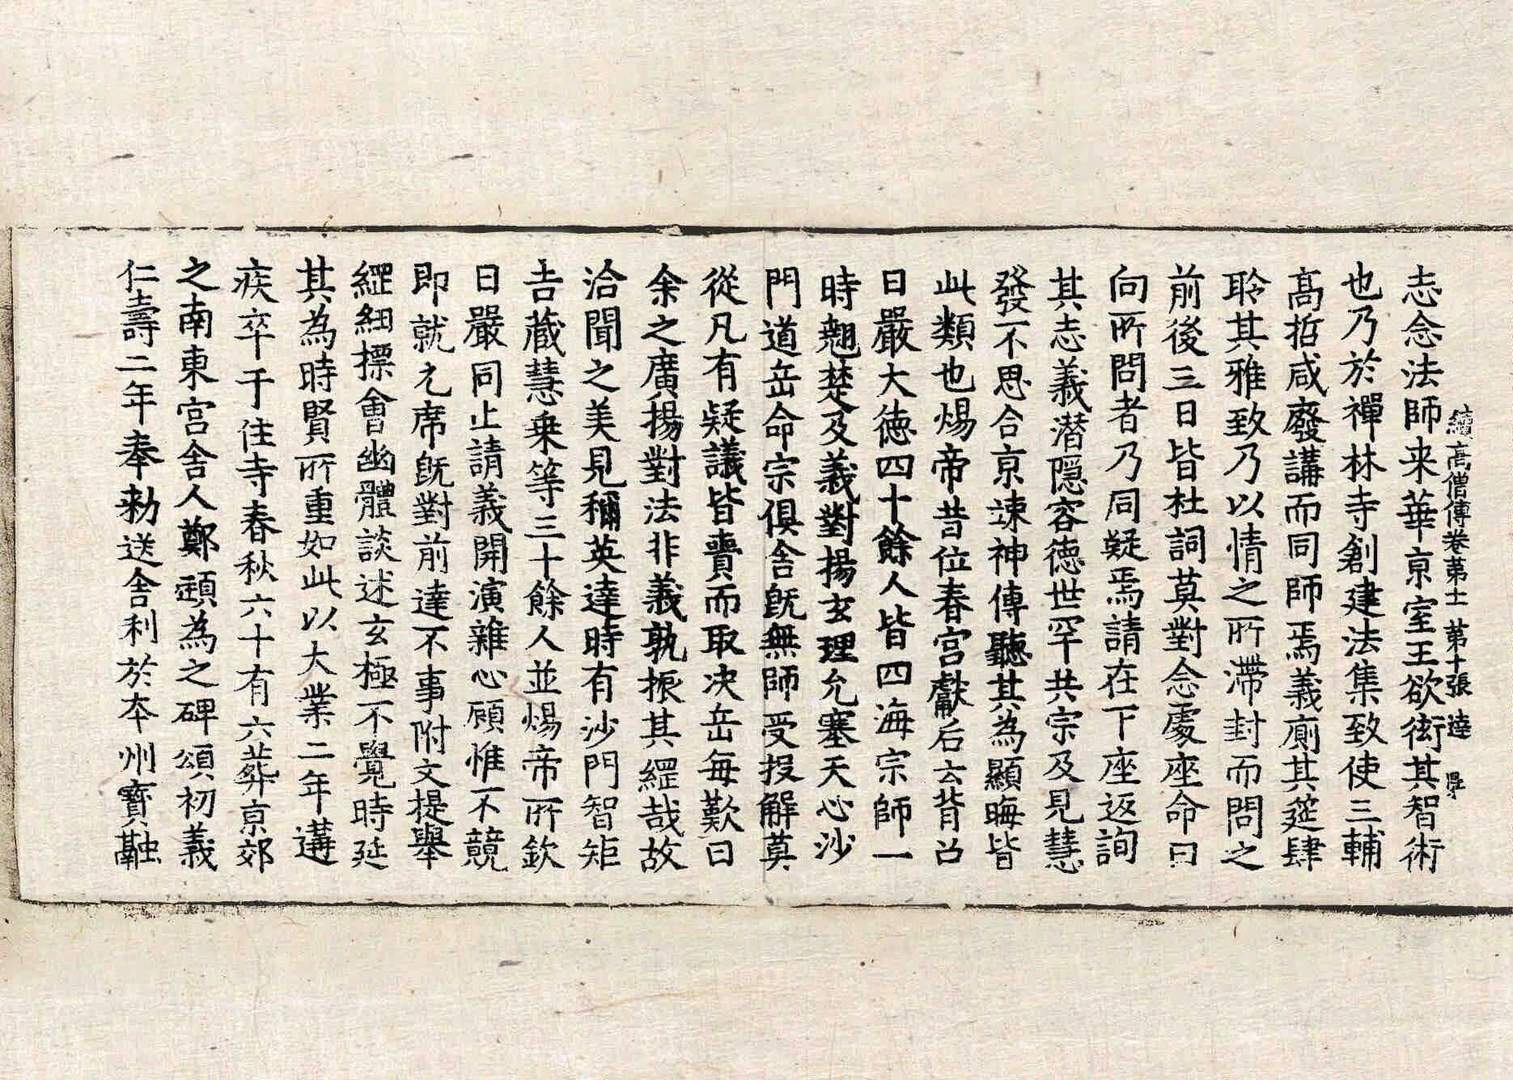 續高僧傳卷第十一 第十張 達 學
志念法師来華京室王欲衒其智術
也乃於禪林寺創建法集致使三輔
髙哲咸廢講而同師焉義廁其筵肆
聆其雅致乃以情之所滯封而問之
前後三日皆杜詞莫對念處座命曰
向所問者乃同疑焉請在下座返詢
其志義潜隠容德世罕共宗及見慧
發不思合京竦神傳聽其為顯晦皆
此類也煬帝昔位春宮獻后云背召
日嚴大德四十餘人皆四海宗師一
時翹楚及義對揚玄理允塞天心沙
門道岳命宗俱舍旣無師受投解莫
從凡有疑議皆賷而取决岳每歎曰
余之廣揚對法非義孰振其綱哉故
洽聞之美見稱英達時有沙門智矩
吉蔵慧乗等三十餘人並煬帝所欽
日嚴同止請義開演雜心顧惟不競
即就元席旣對前達不事附文提舉
綱紐摽會幽體談述玄極不覺時延
其為時賢所重如此以大業二年遘
疾卒于住寺春秋六十有六葬京郊
之南東宮舍人鄭頲為之碑頌初義
仁壽二年奉勑送舍利於本州寳融